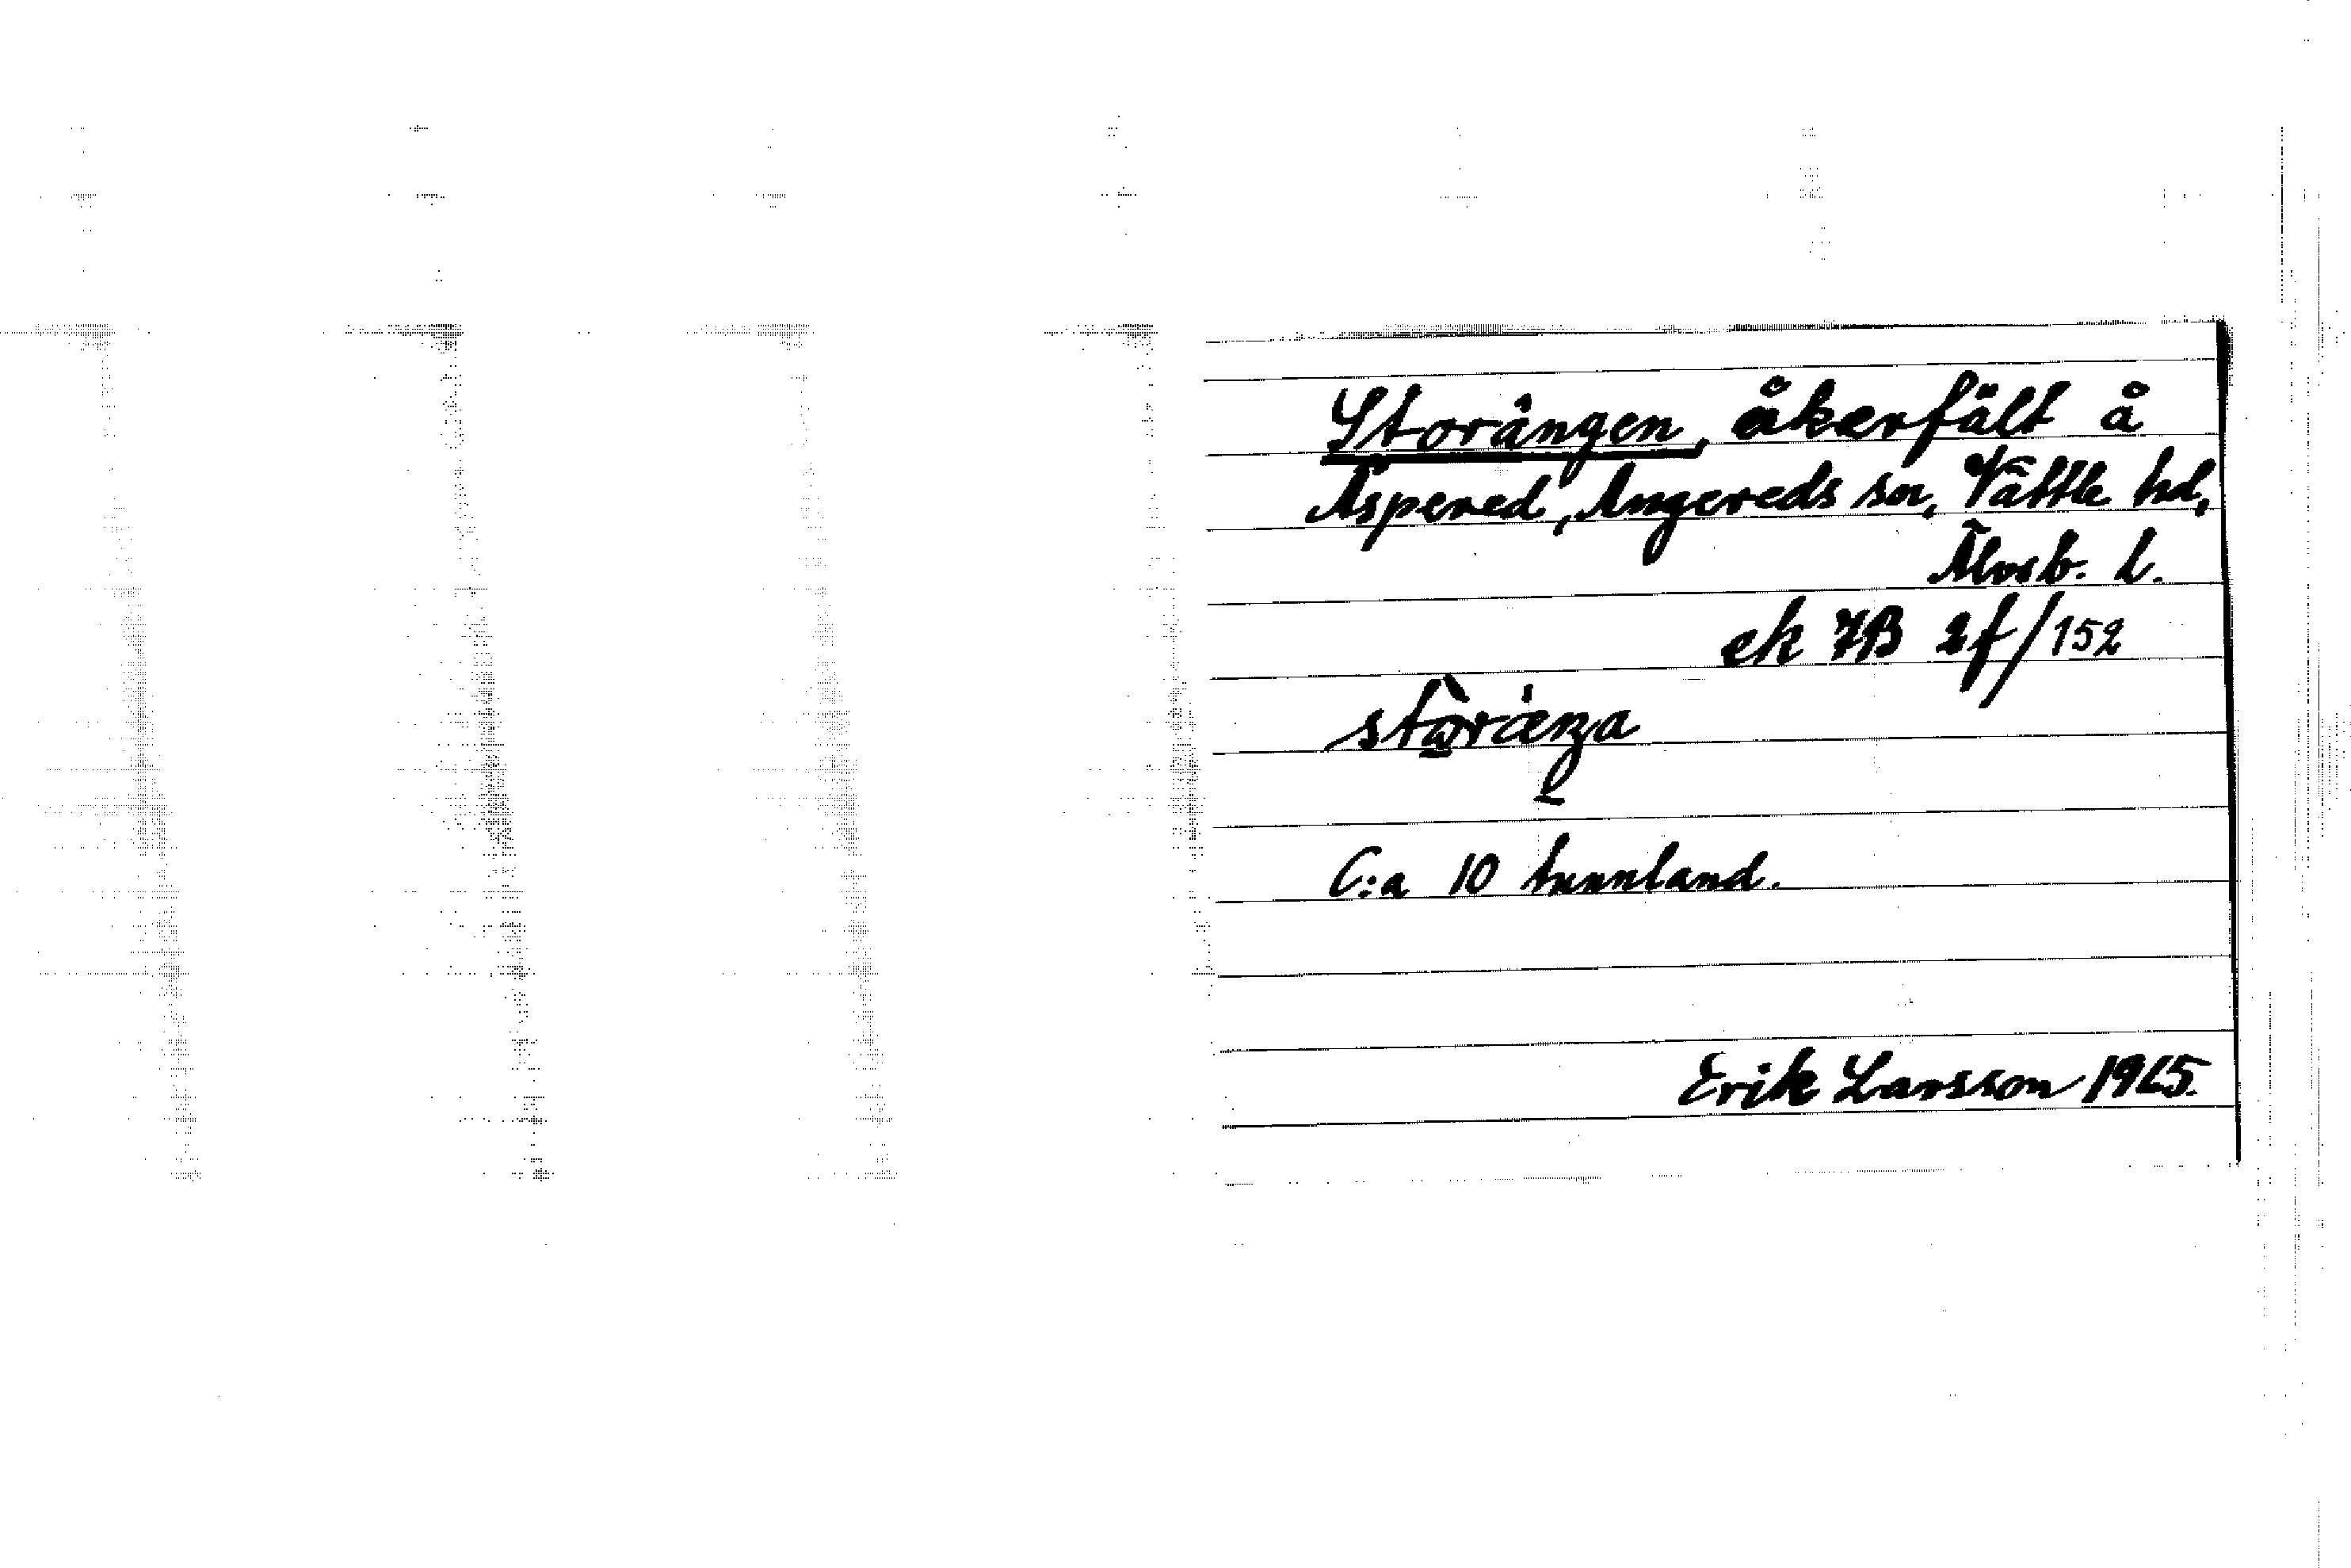 Storängen, åkerfält å
Äspered, Angereds sn, Vättle hd,
Älvsb. l.
ek 7B 2f/152
C:a 10 tunnland.
Erik Larsson 1965.